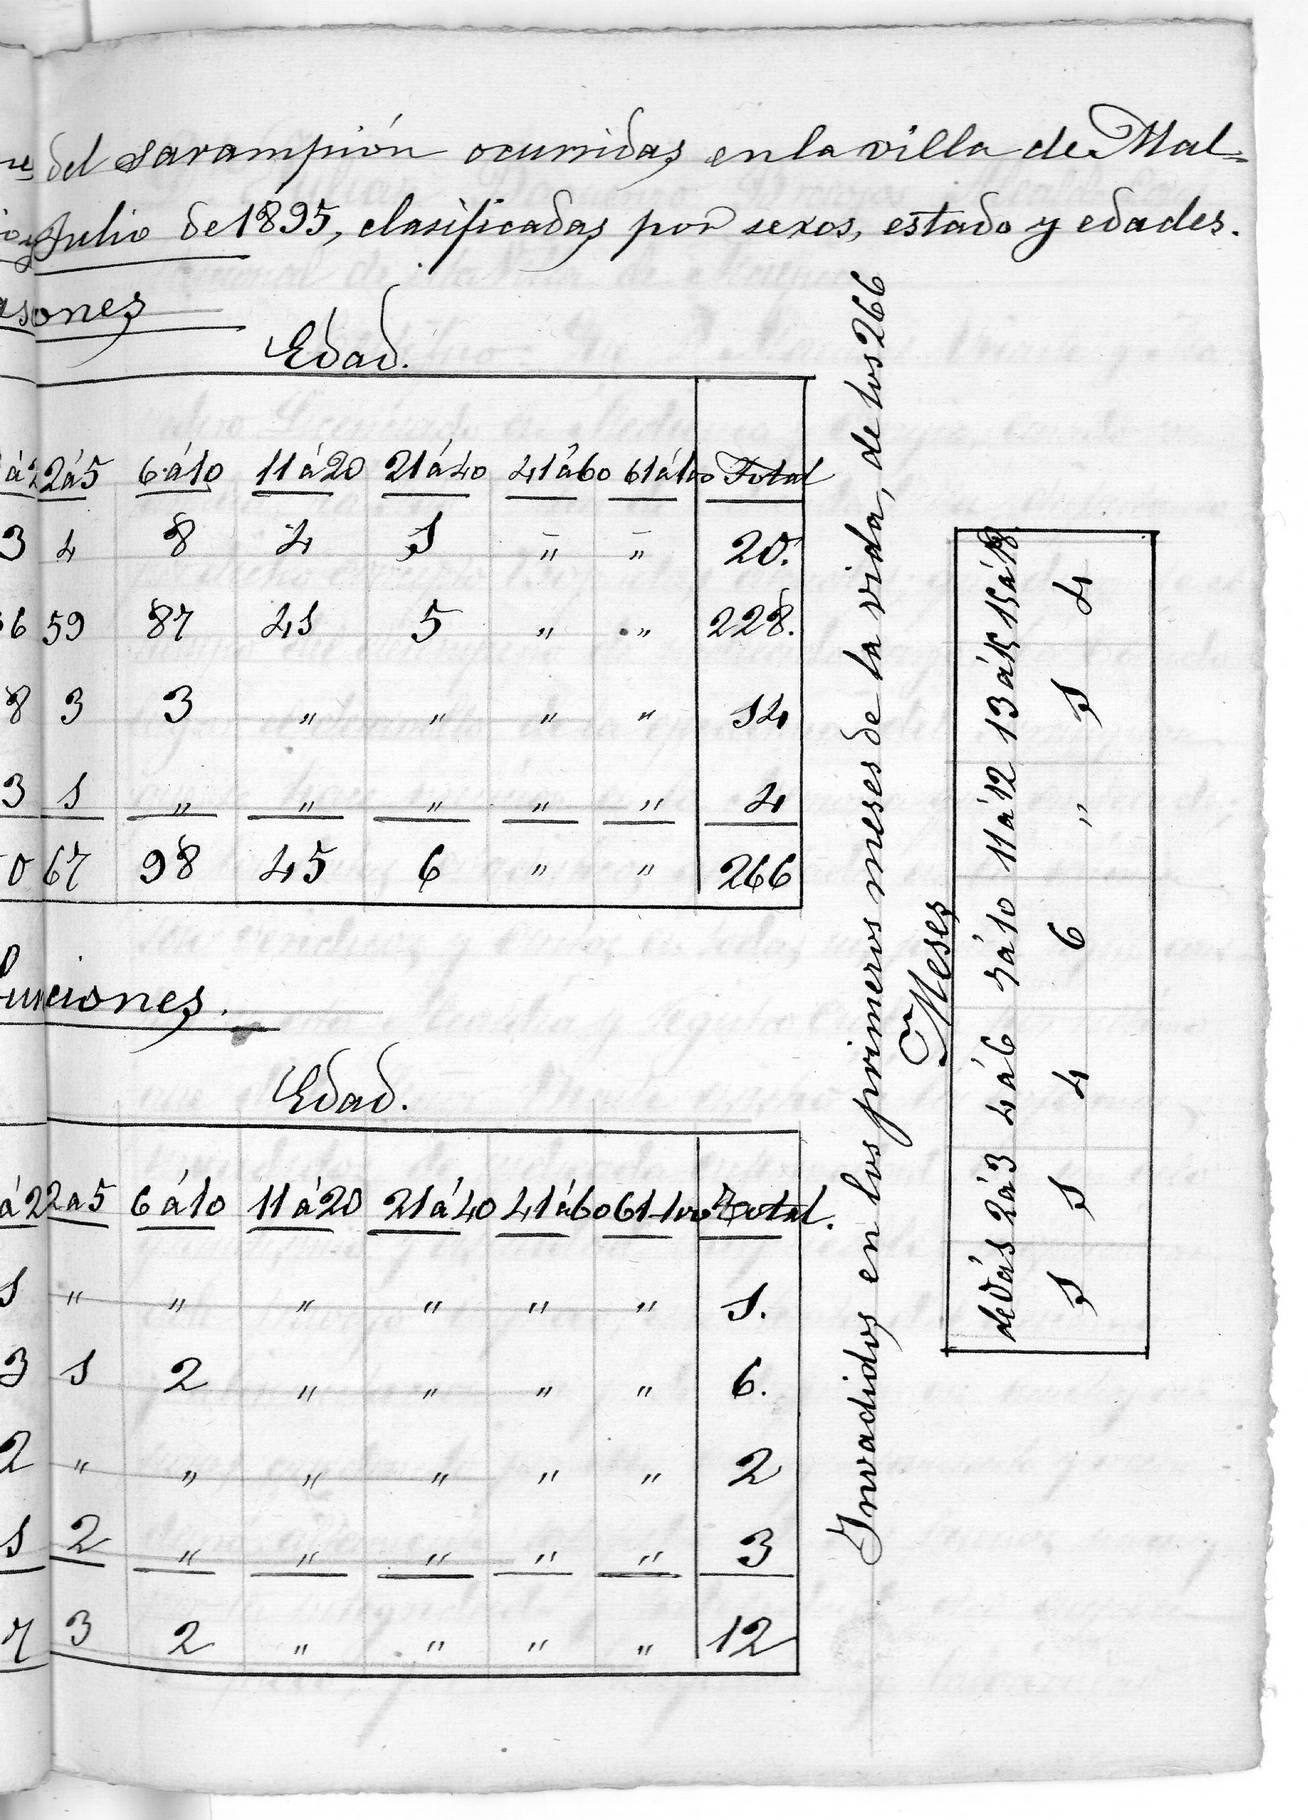 del sarampión ocurridas en la villa de Mal=
Julio de 1895, clasificadas por sexos, estado y edades.
asones
Edad.
á 2 2 á 5 6 á 10 11 á 20 21 á 40 41 á 60 61 á 100 Total
3 4 8 4 1 " " 20.
6 59 87 41 5 " " 228.
8 3 3 " " " " 14
3 1 " " " " " 4
0 67 98 45 6 " " 266
funciones.
Edad.
á 2 2 a 5 6 á 10 11 á 20 21 á 40 41 á 60 61-100 Total.
1 " " " " " " 1.
3 1 2 " " " " 6.
2 " " " " " " 2
1 2 " " " " " 3
7 3 2 " " " " 12
Invadidos en los primeros meses de la vida, de los 266
Meses
de 0 á 1 2 á 3 4 á 6 7 á 10 11 á 12 13 á 15 15 á 18
1 1 4 6 " 1 4